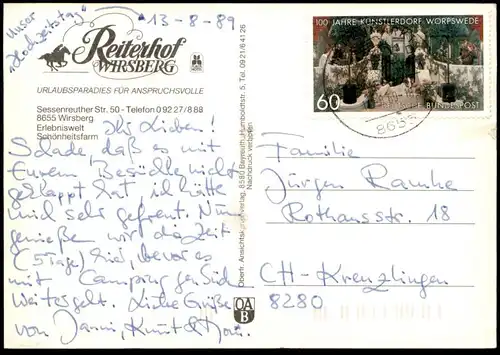 Unser
"Hochzeitstag"
13-8-89
Reiterhof
WIRSBERG
URLAUBSPARADIES FÜR ANSPRUCHSVOLLE
Sessenreuther Str. 50 - Telefon 0 92 27/8 88
8655 Wirsberg
Erlebniswelt
Schönheitsfarm
Ihr Lieben!
Schade, daß es mit
Eurem Besuch nicht
geklappt hat, ich hätte
mich sehr gefreut. Nun
genießen wir die Zeit
(5 Tage) hier, bevor es
mit Camping gen Süd
weitergeht. Liebe Grüße
von Janni, Kunt &
Oberfr. Ansichtskartenverlag, 8580 Bayreuth, Humboldtstr. 5, Tel. 0921/64126
Nachdruck verboten
OA
B
100 JAHRE KÜNSTLERDORF WORPSWEDE
60
DEUTSCHE BUNDESPOST
8655
Familie
Jürgen Ramke
Rothausstr. 18
CH-Kreuzlingen
8280